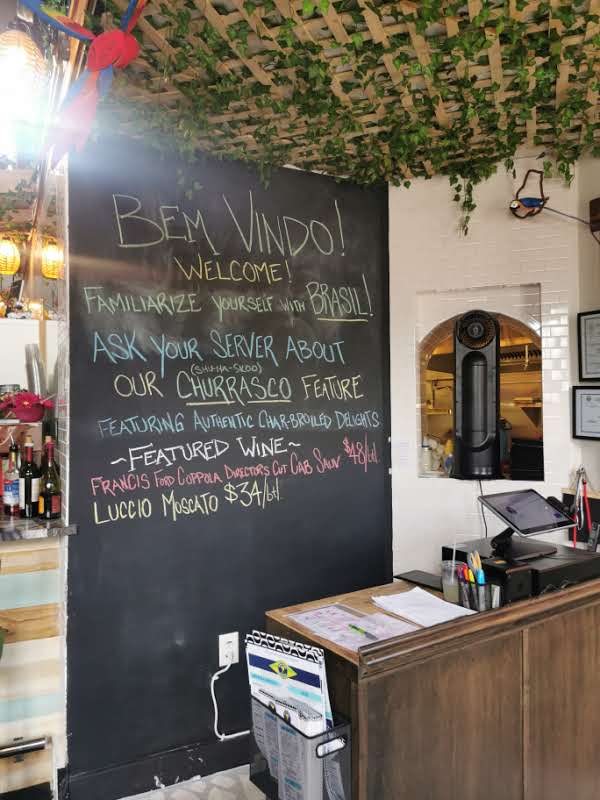 BEM VINDO!
WELCOME!
FAMILIARIZE YOURSELF WITH BRASIL!
ASK YOUR SERVER ABOUT
(SHU-HA-SKOO)
OUR CHURRASCO FEATURE
FEATURING AUTHENTIC CHAR-BROILED DELIGHTS
~FEATURED WINE~
FRANCIS FORD COPPOLA DIRECTORS CUT CAB SAUV $48/btl.
LUCCIO MOSCATO $34/btl.